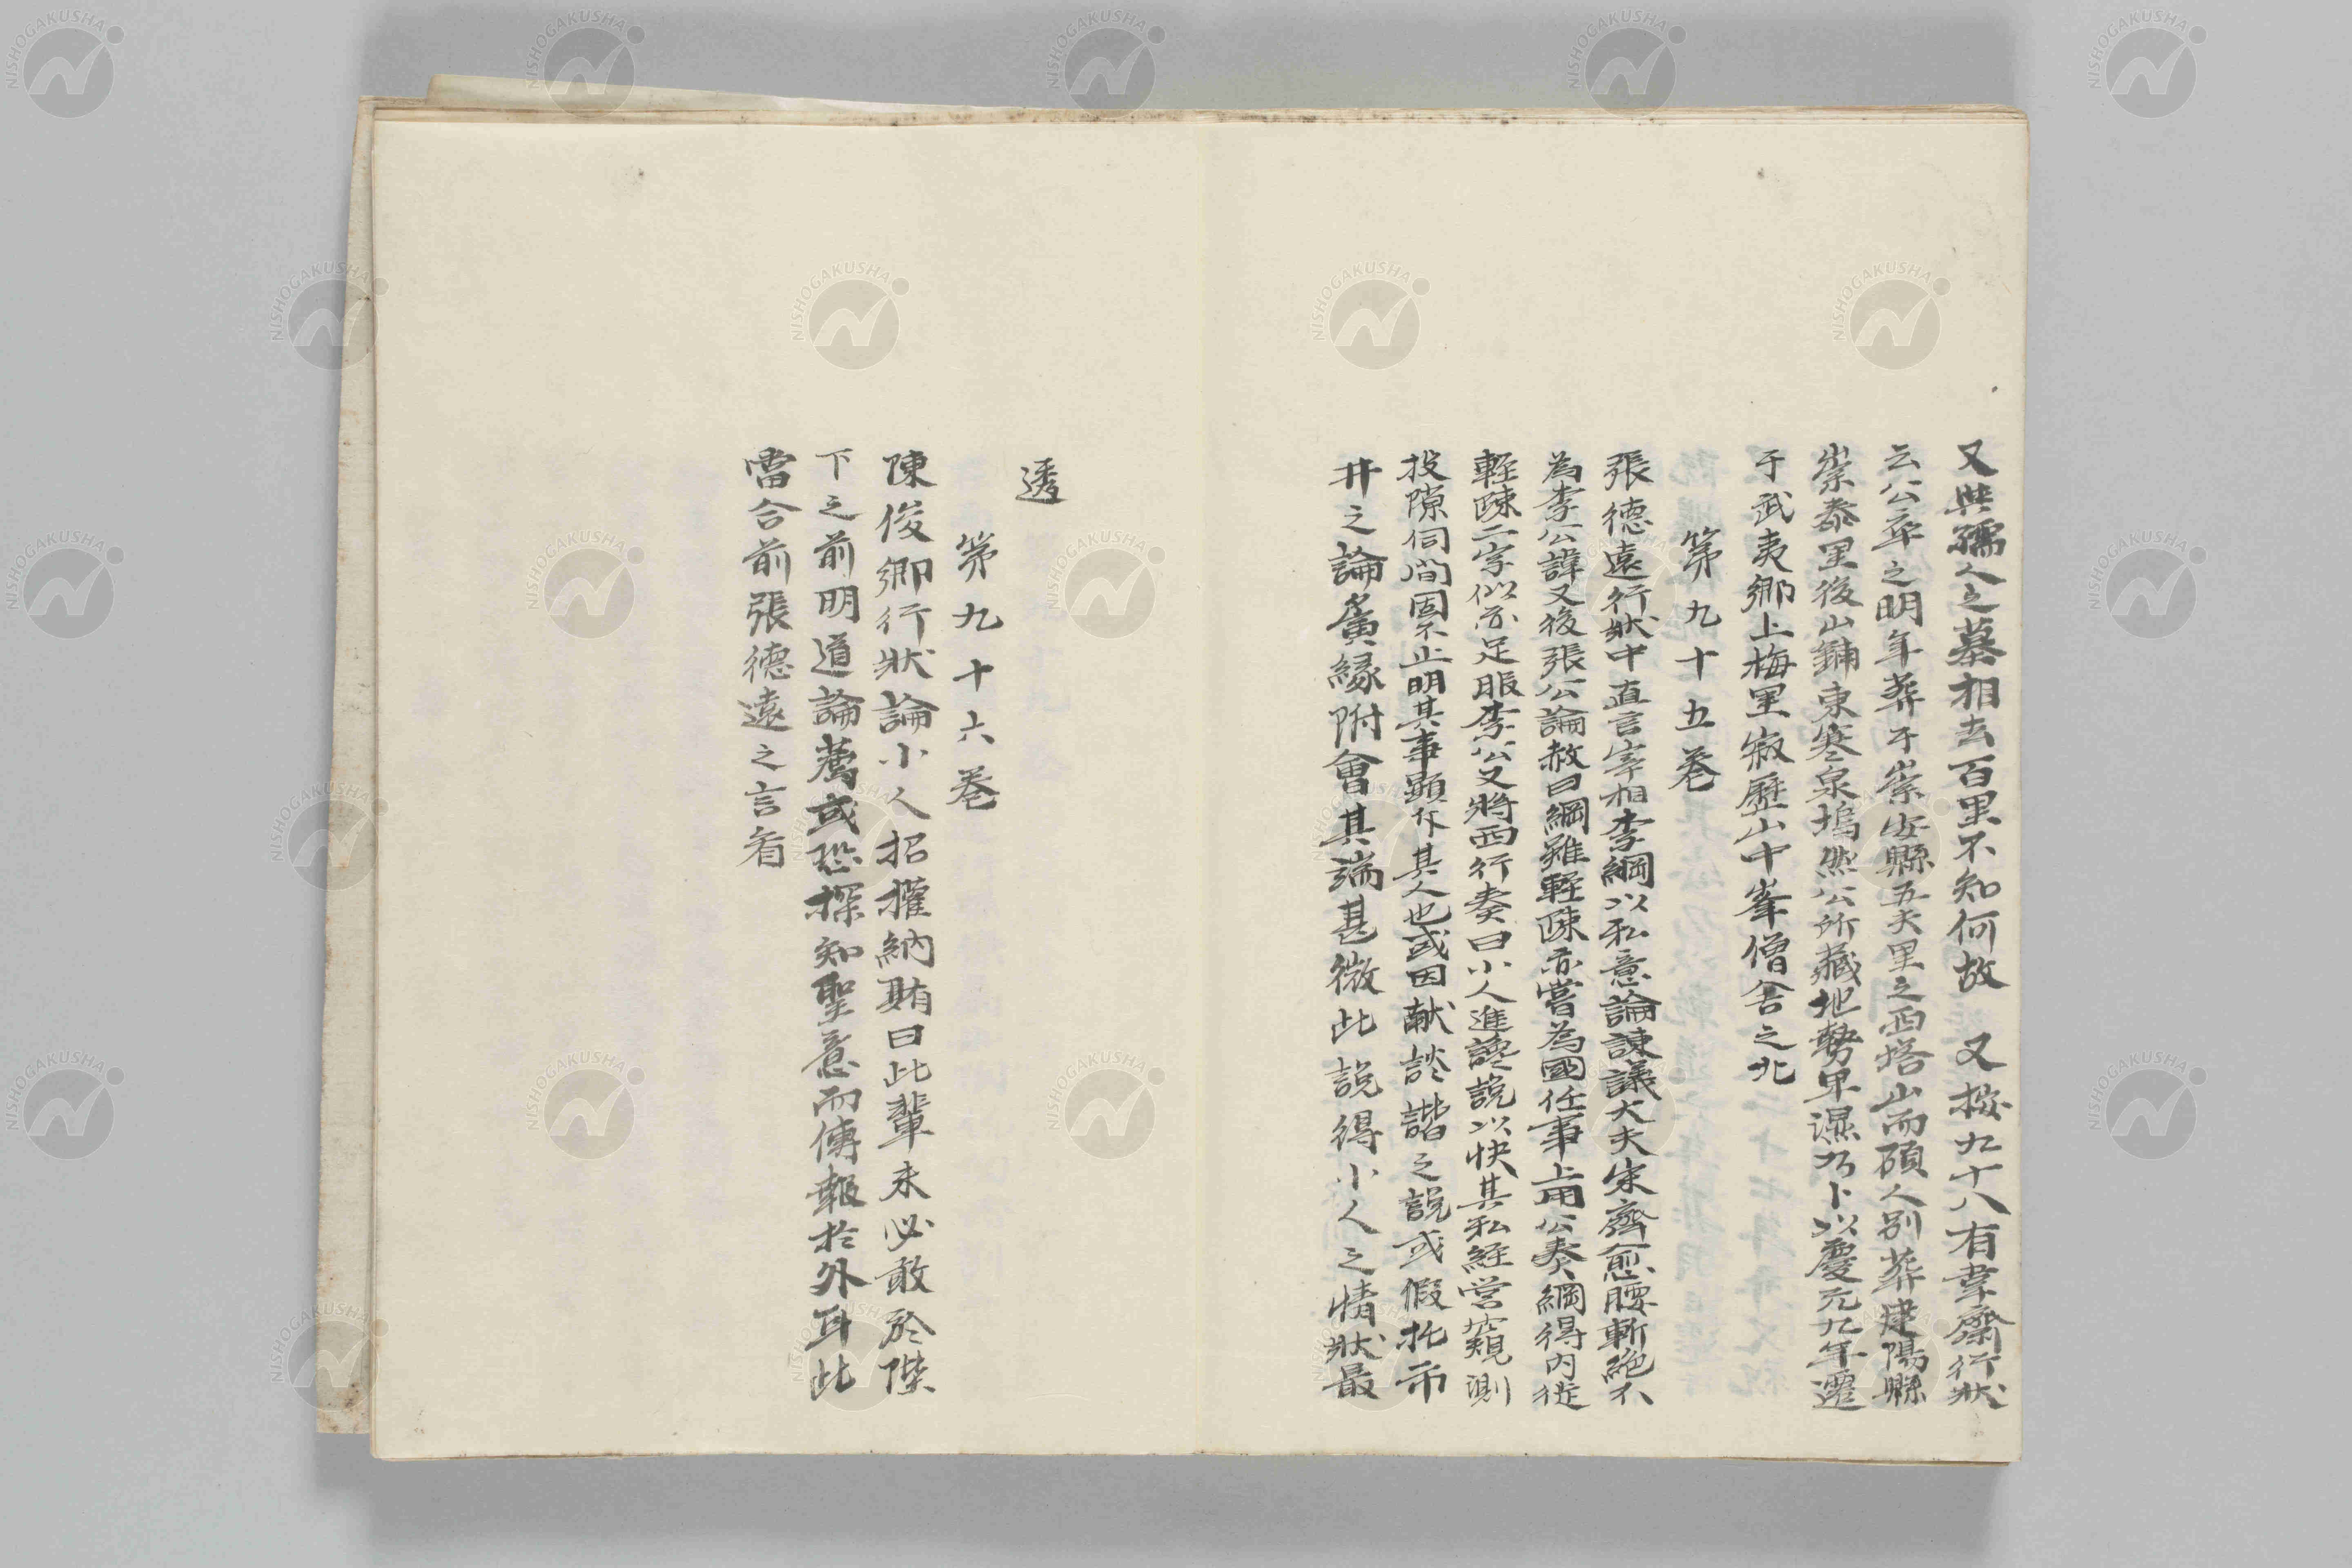 又與孺人之墓相去百里不知何故　又按九十八有韋齋行狀
云公卒之明年葬于崇安縣五夫里之西塔山而碩人別葬建陽縣
崇泰里後山鋪東寒泉塢然公所藏地勢卑濕乃卜以慶元九年遷
于武夷鄉上梅里寂歷山中峯僧舍之北
第九十五巻
張德遠行狀中直言宰相李綱以私意論諫議大夫宋齊愈腰斬絶不
為李公諱又後張公論赦曰綱雖輕踈亦嘗為國任事上用公奏綱得内徙
輕踈二字似不足服李公又將西行奏曰小人進讒説以快其私經営窺測
投隙伺間固不止明其事顯斥其人也或因献談諧之説或假托市
井之論夤緣附會其端甚微此説得小人之情狀最
透
第九十六巻
陳俊卿行狀論小人招權納賄曰此輩未必敢於陛
下之前明道論薦或恐探知聖意而傳報於外耳此
當合前張德遠之言看
NISHOGAKUSHA